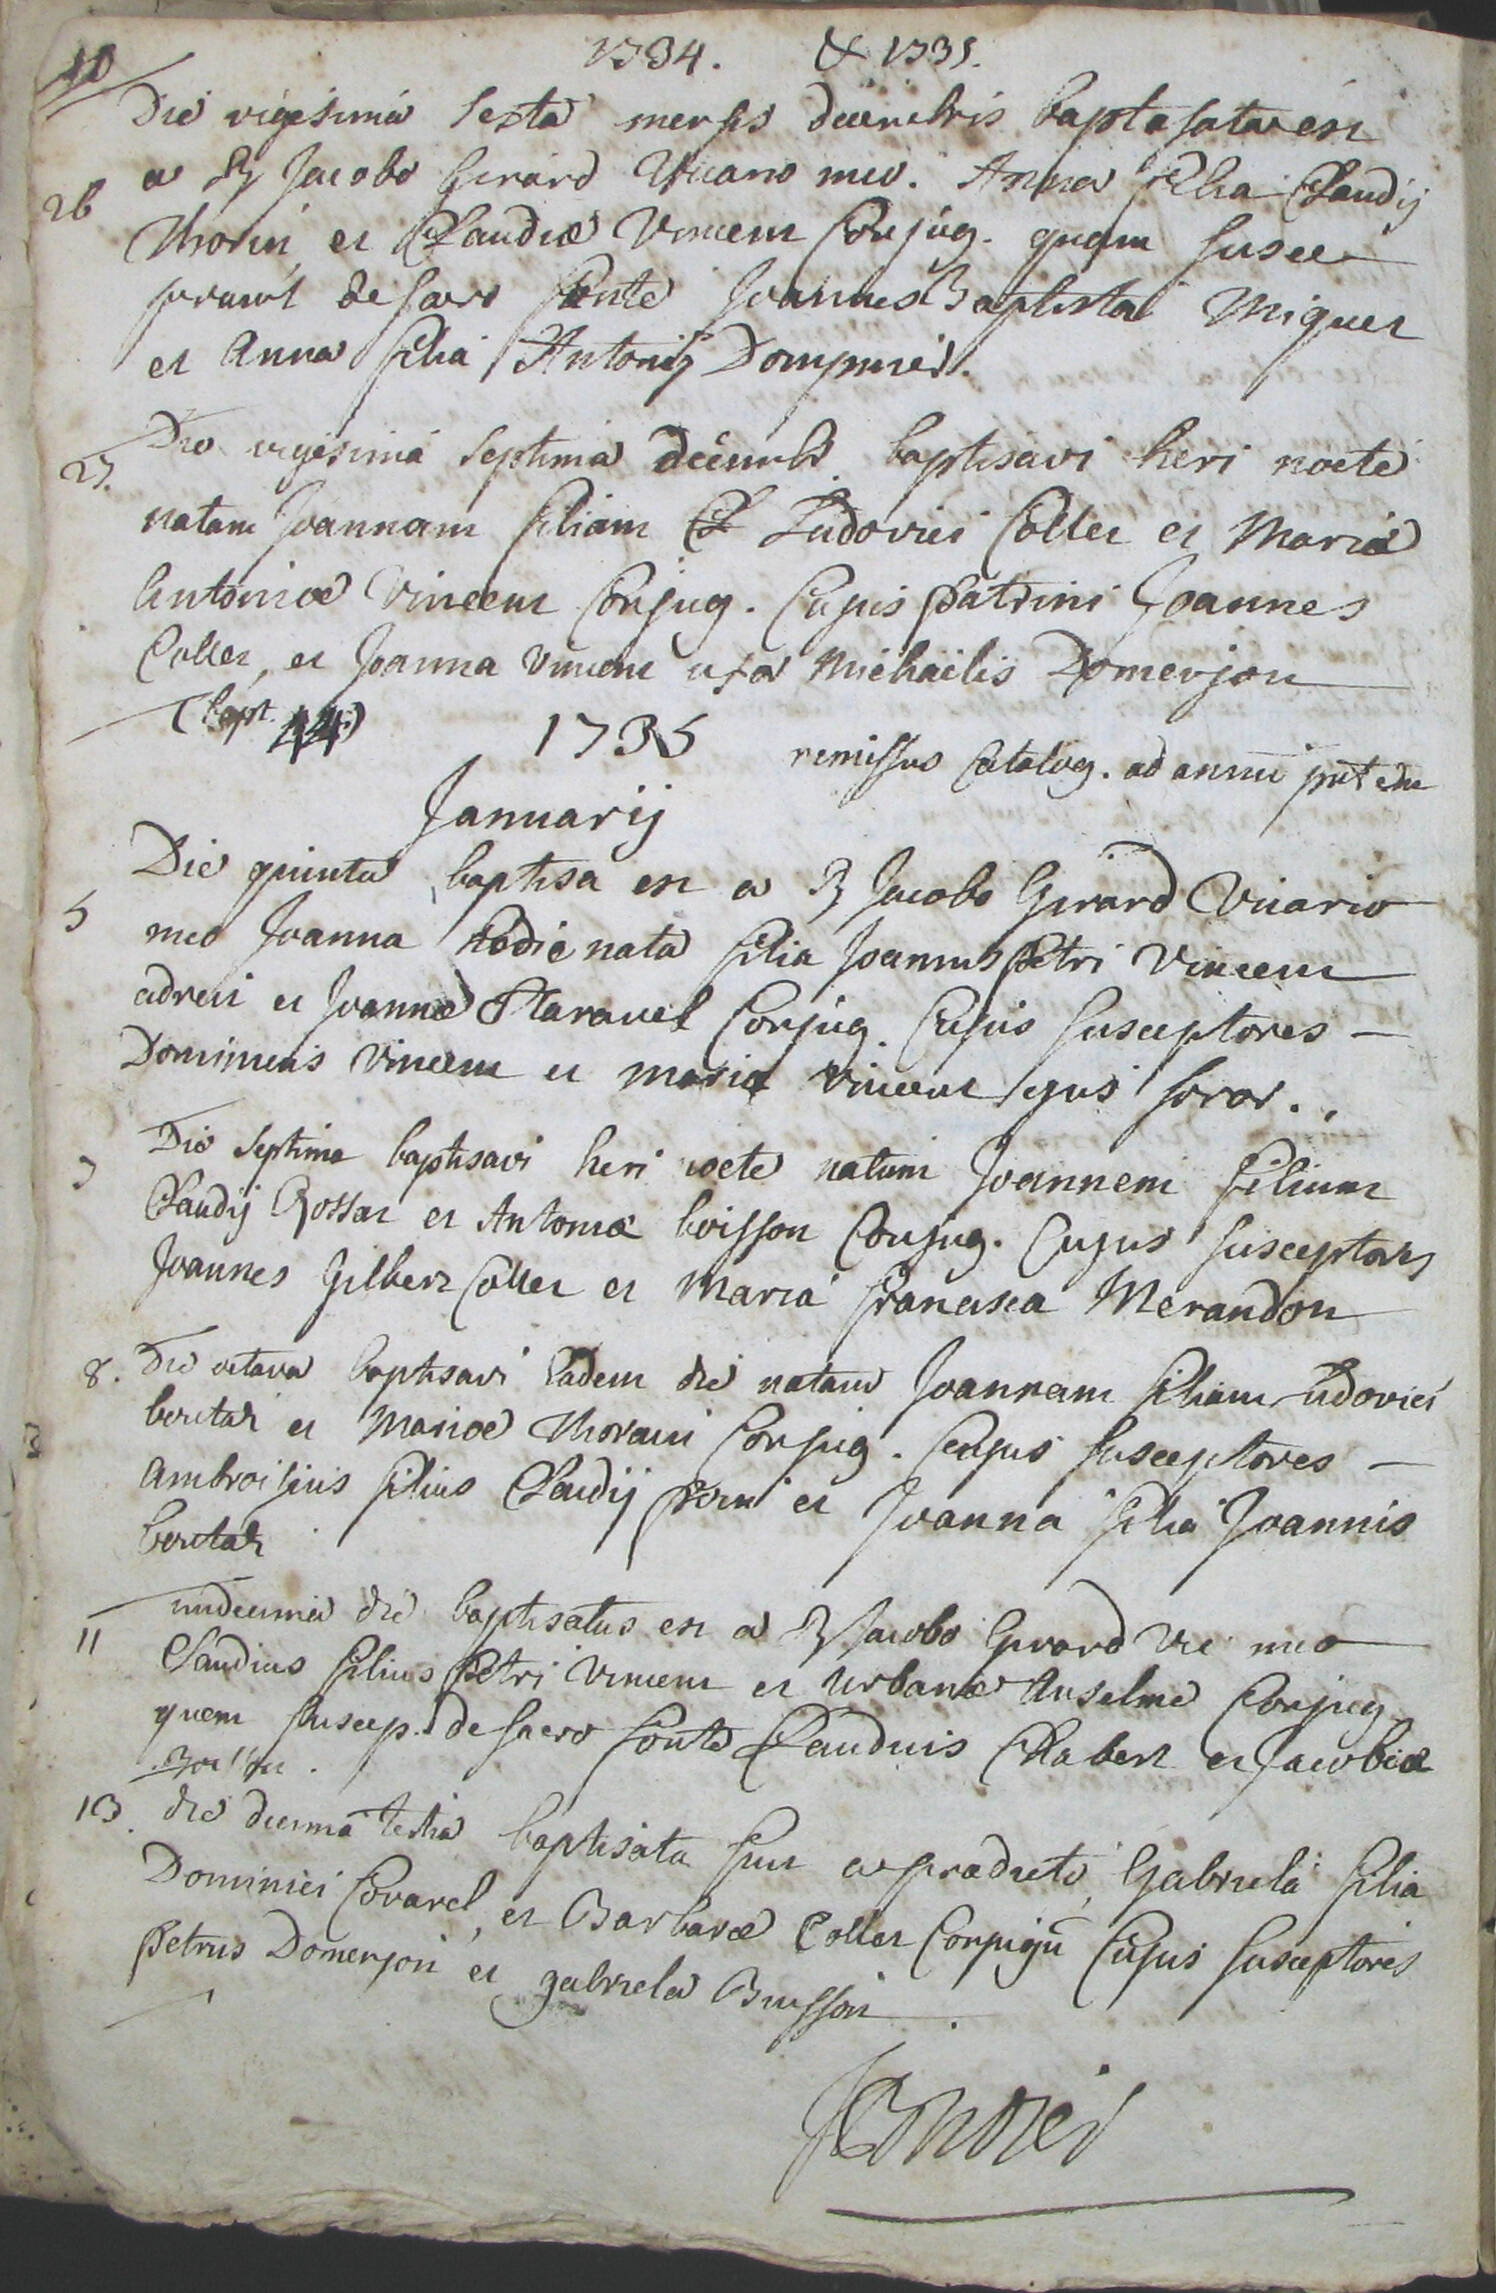 10
1734. & 1735.
Die vigesima sexta mensis decembris baptasata est
26
a R Jacobo Girard Vicario meo. Anna filia Claudij
Thorin et Claudiæ Vincent Conjug. quam susce
perunt de sacro fonte Joannes Baptista Miquet
et Anna filia Antonij Dompnier.
Die vigesima septima decemb. baptisavi heri nocte
27.
natam Joannam filiam Ludovici Collet et Maria
Antoniæ Vincent Conjug. Cujus patrini Joannes
Collet, et Joanna Vincent uxor Michaëlis Domerjon
(bapt. 44)
1735
remissus Catalog. ad annū
Januarij
Die quinta baptisa est a R Jacobo Girard Vicario
5
meo Joanna hodie nata filia Joannis petri Vincent
et Joannæ Staravel Conjug. Cujus susceptores -
Dominicus Vincent et maria Vincent ejus soror.
Die septima baptisavi heri nocte natum Joannem filium
7
Claudij Rossat et Antoniæ boisson Conjug. Cujus susceptores
Joannes Gilbert Collet et Maria francisca Merandon
8. Die octava baptisavi eadem die natam Joannam filiam Ludovici
bertat et Mariæ Thorain Conjug. Cujus susceptores -
Ambroisius filius Claudij et Joanna filia Joannis
bertat
undecima die baptisatus est a R Jacobo Girard Vic meo
11
Claudius filius Petri Vincent et Urbanæ Anselme Conjug.
quem suscep. de sacro fonte Claudius Chabert et Jacobia
13. die decima tertia baptisata fuit a prædicto, Gabriela filia
Dominici Covarel, et Barbaræ Collet Conjugū Cujus susceptores
petrus Domenjon et gabriela Buisson.